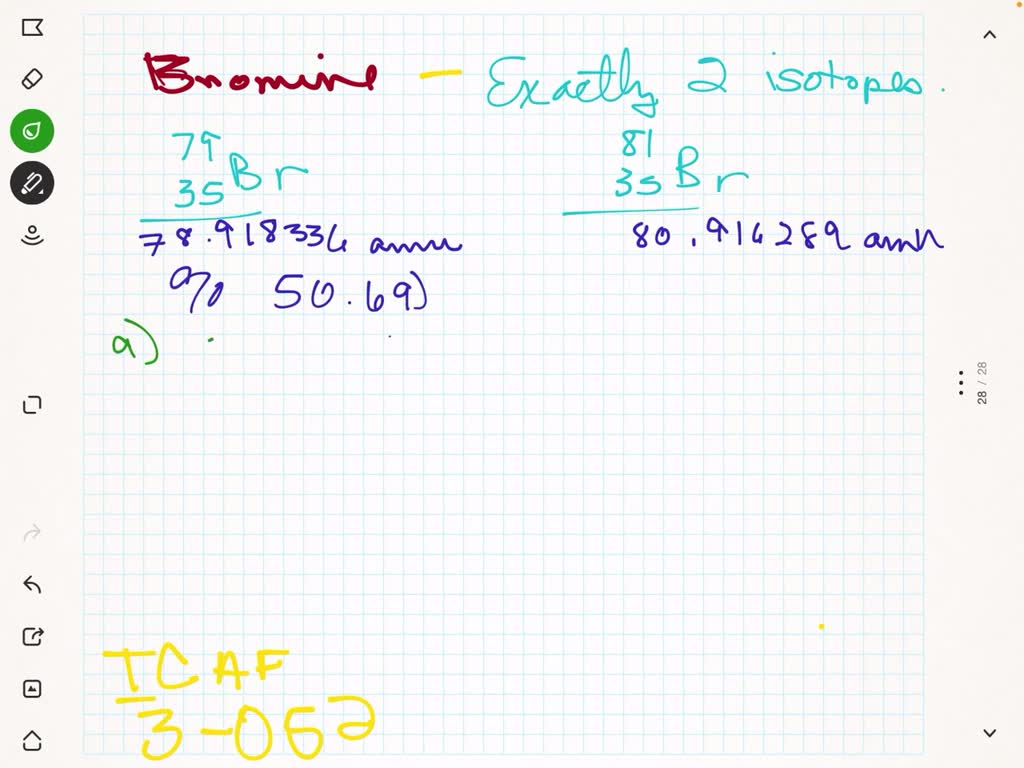 Bromine – Exactly 2 isotopes.
79 81
35 Br 35 Br
78.918336 amu 80.916289 amu
% 50.69)
a)
28 / 28
TCAF
3-062